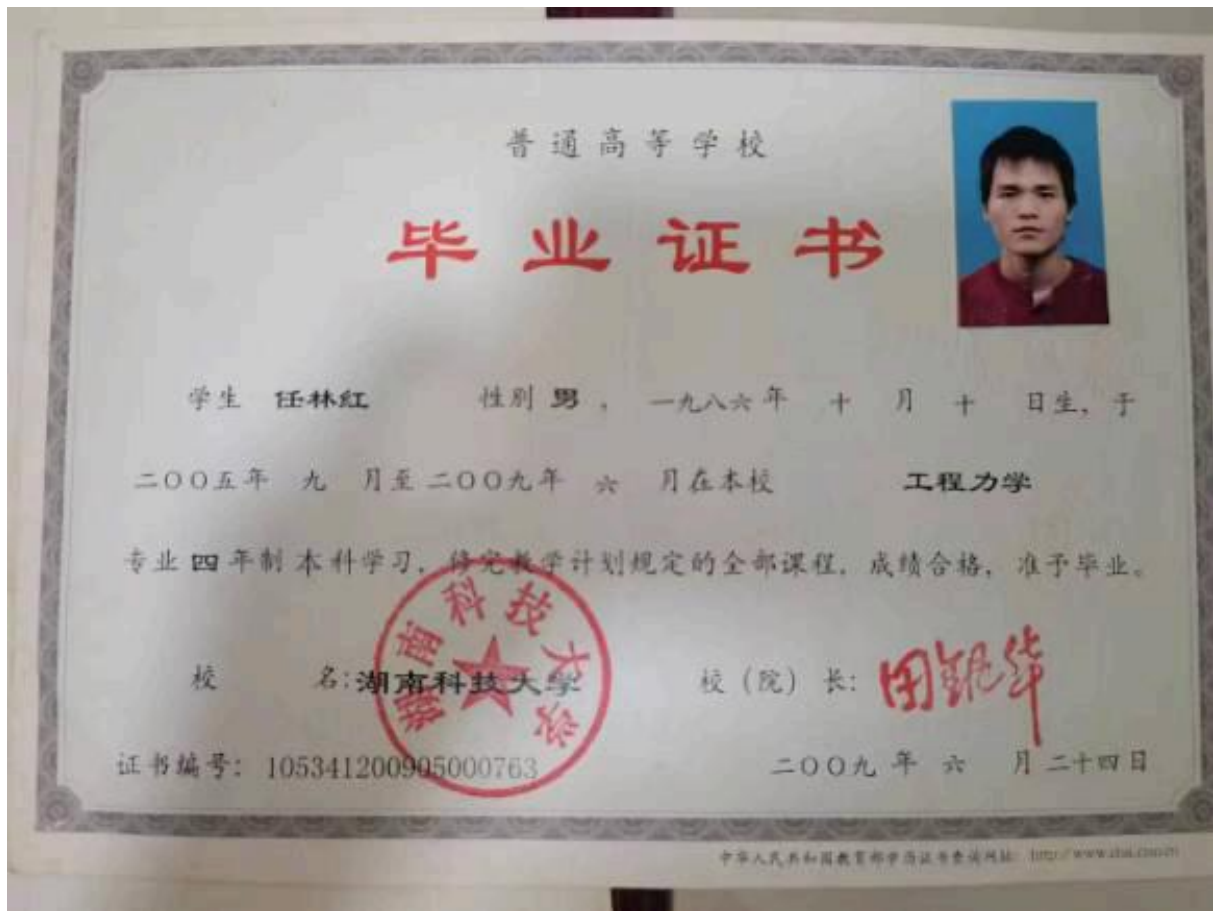 普通高等学校
毕业证书
学生 任林红 性别 男 , 一九八六年 十 月 十 日生, 于
二〇〇五年 九 月至二〇〇九年 六 月在本校 工程力学
专业 四 年制 本科学习, 修完教学计划规定的全部课程, 成绩合格, 准予毕业。
湖南科技大学
校 名: 湖南科技大学 校 (院) 长: 田银华
证书编号: 105341200905000763 二〇〇九 年 六 月 二十四日
中华人民共和国教育部学历证书查询网址: